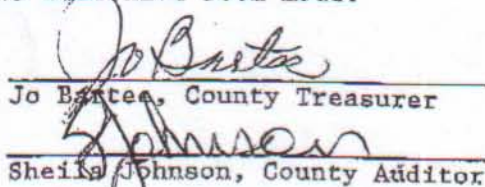 Jo Bartee
Jo Bartee, County Treasurer
S Johnson
Sheila Johnson, County Auditor